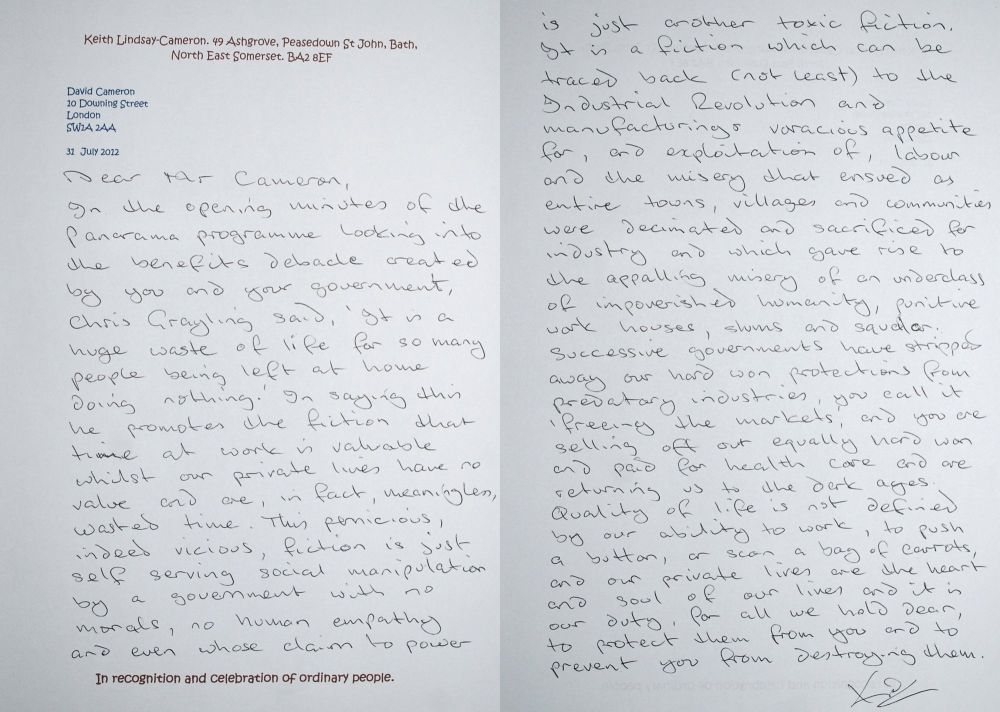 Keith Lindsay-Cameron. 49 Ashgrove, Peasedown St John, Bath,
North East Somerset. BA2 8EF
David Cameron
10 Downing Street
London
SW1A 2AA
31 July 2012
Dear Mr Cameron,
In the opening minutes of the
Panorama programme looking into
the benefits debacle created
by you and your government,
Chris Grayling said, 'It is a
huge waste of life for so many
people being left at home
doing nothing.' In saying this
he promotes the fiction that
time at work is valuable
whilst our private lives have no
value and are, in fact, meaningless,
wasted time. This pernicious,
indeed vicious, fiction is just
self serving social manipulation
by a government with no
morals, no human empathy
and even whose claim to power
In recognition and celebration of ordinary people.
is just another toxic fiction.
It is a fiction which can be
traced back (not least) to the
Industrial Revolution and
manufacturings voracious appetite
for, and exploitation of, labour
and the misery that ensued as
entire towns, villages and communities
were decimated and sacrificed for
industry and which gave rise to
the appalling misery of an underclass
of impoverished humanity, punitive
work houses, slums and squalor.
Successive governments have stripped
away our hard won protections from
predatory industries, you call it
'freeing the markets', and you are
selling off out equally hard won
and paid for health care and are
returning us to the dark ages.
Quality of life is not defined
by our ability to work, to push
a button, or scan a bag of carrots,
and our private lives are the heart
and soul of our lives and it is
our duty, for all we hold dear,
to protect them from you and to
prevent you from destroying them.